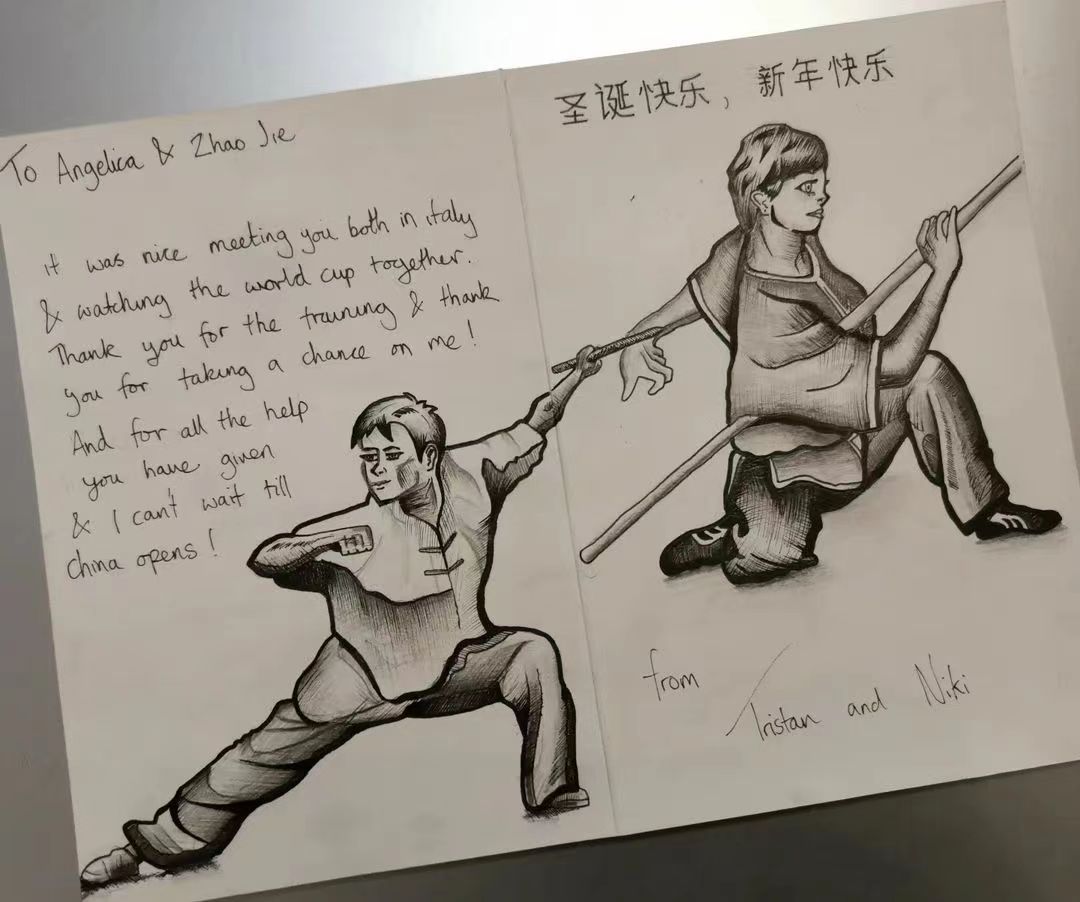 To Angelica & Zhao Jie
it was nice meeting you both in italy
& watching the world cup together.
Thank you for the training & thank
you for taking a chance on me!
And for all the help
you have given
& I can't wait till
china opens!
圣诞快乐，新年快乐
from Tristan and Niki